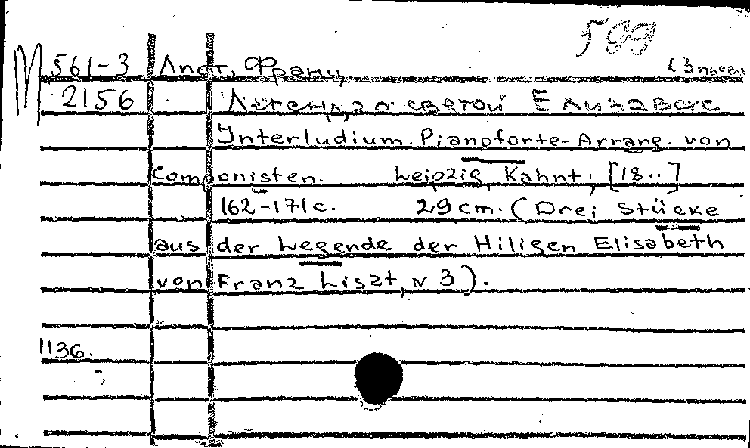 599
М 561-3 Лист, Франц (3 
2156 Легенда о святой Елизавете
Interludium. Pianoforte-Arrang. von
Componisten. Leipzig, Kahnt, [18..]
162-171 с. 29 cm. (Drei Stücke
aus der Legende der Hiligen Elisabeth
von Franz Liszt, N 3).
1136.